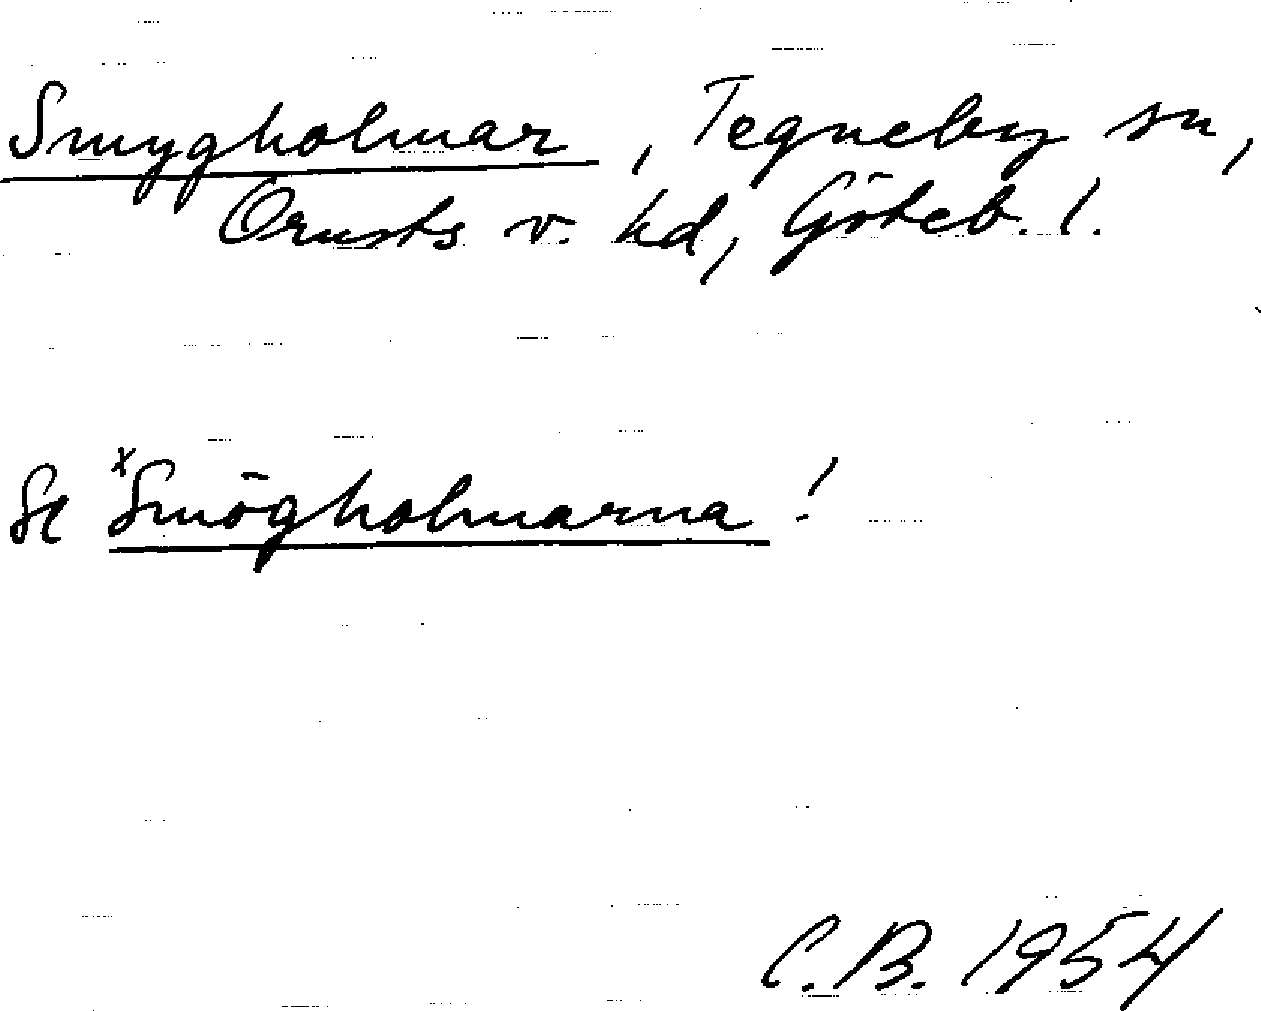 Smygholmar, Tegneby sn,
Orusts v. hd, Göteb. l.
Se ˣSmögholmarna!
C.B. 1954